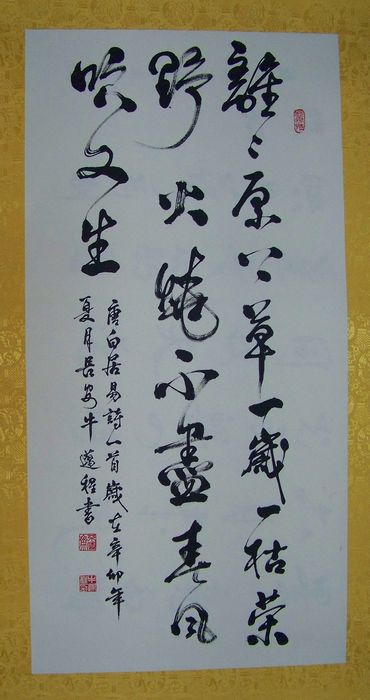 離〻原上草一歲一枯榮
野火燒不盡春風
吹又生
唐白居易詩一首歲在辛卯年
夏月長安牛蓬程書